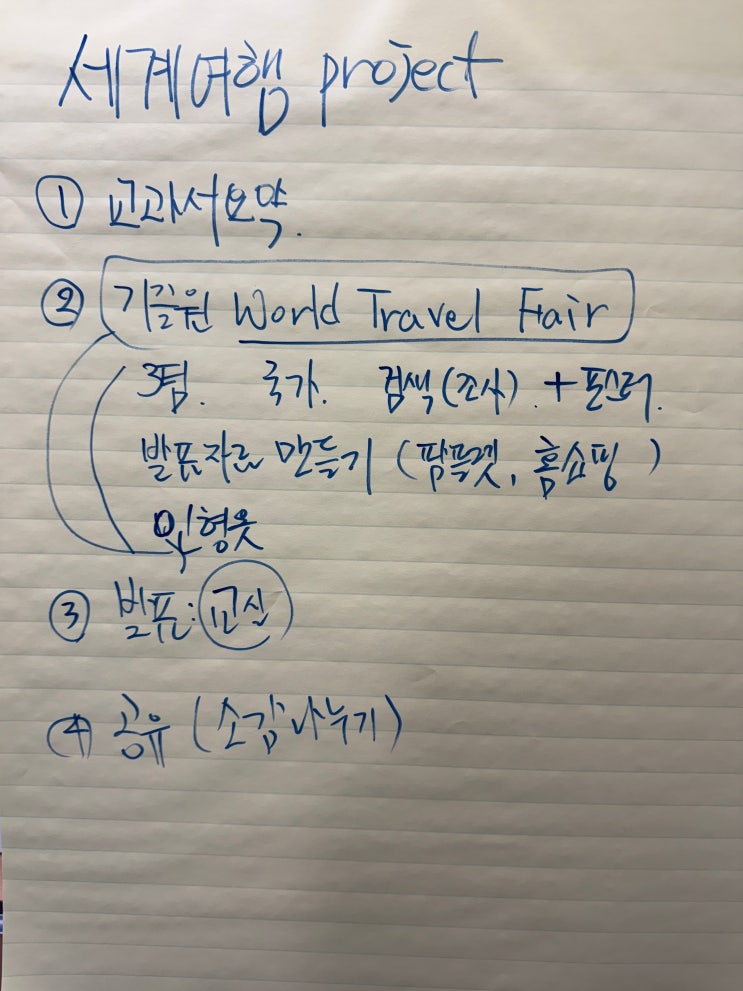 세계여행 project
① 교과서요약.
② 기글원 World Travel Fair
3팀. 국가. 검색(조사). + 포스터.
발표자료 만들기 (팜플렛, 홈쇼핑)
인형옷
③ 발표: 교실
④ 공유 (소감나누기)